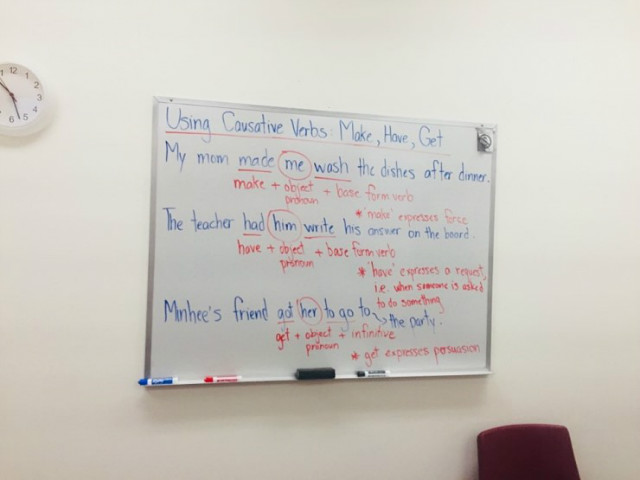 Using Causative Verbs: Make, Have, Get
My mom made me wash the dishes after dinner.
make + object pronoun + base form verb
* 'make' expresses force
The teacher had him write his answer on the board.
have + object pronoun + base form verb
* 'have' expresses a request,
i.e. when someone is asked
to do something
Minhee's friend got her to go to the party.
get + object pronoun + infinitive
* get expresses persuasion
12
1
2
3
4
5